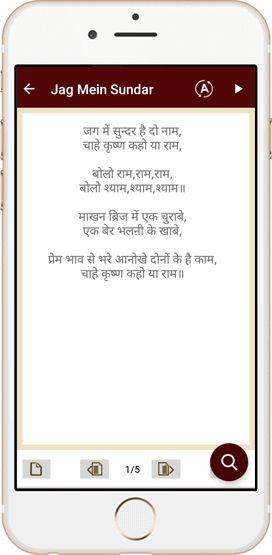 Jag Mein Sundar
A
जग में सुन्दर है दो नाम,
चाहे कृष्ण कहो या राम,
बोलो राम,राम,राम,
बोलो श्याम,श्याम,श्याम॥
माखन ब्रिज में एक चुराबे,
एक बेर भलनी के खाबे,
प्रेम भाव से भरे आनोखे दोनों के है काम,
चाहे कृष्ण कहो या राम॥
1/5